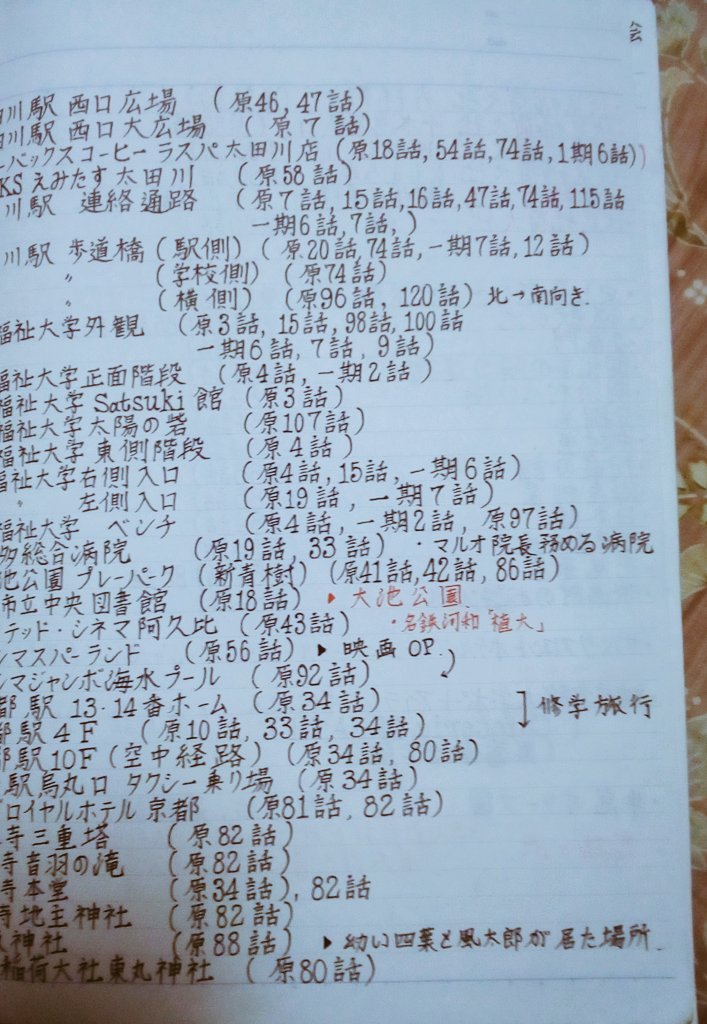 会
川駅 西口広場 (原46, 47話)
川駅 西口大広場 (原7話)
ーバックスコーヒー ラスパ太田川店 (原18話, 54話, 74話, 1期6話))
KS えみたす太田川 (原58話)
川駅 連絡通路 (原7話, 15話, 16話, 47話, 74話, 115話
一期6話, 7話, )
川駅 歩道橋 (駅側) (原20話, 74話, 一期7話, 12話)
〃 (学校側) (原74話)
〃 (横側) (原96話, 120話) 北→南向き.
福祉大学外観 (原3話, 15話, 98話, 100話
一期6話, 7話, 9話)
福祉大学正面階段 (原4話, 一期2話)
福祉大学 Satsuki館 (原3話)
福祉大学 太陽の砦 (原107話)
福祉大学 東側階段 (原4話)
福祉大学右側入口 (原4話, 15話, 一期6話)
〃 左側入口 (原19話, 一期7話)
福祉大学 ベンチ (原4話, 一期2話, 原97話)
多総合病院 (原19話, 33話) ・マルオ院長務める病院
池公園 プレーパーク (新青樹) (原41話, 42話, 86話)
市立中央図書館 (原18話) ▸大池公園
テッド・シネマ阿久比 (原43話) ・名鉄河和「植大」
シマスパーランド (原56話) ▸映画OP.
シマジャンボ海水プール (原92話)
都駅 13・14番ホーム (原34話) 修学旅行
都駅4F (原10話, 33話, 34話)
都駅10F (空中経路) (原34話, 80話)
駅烏丸口 タクシー乗り場 (原34話)
ロイヤルホテル 京都 (原81話, 82話)
寺三重塔 (原82話)
寺音羽の滝 (原82話)
寺本堂 (原34話), 82話
寺地主神社 (原82話)
神社 (原88話) ▸幼い四葉と風太郎が居た場所.
稲荷大社東丸神社 (原80話)